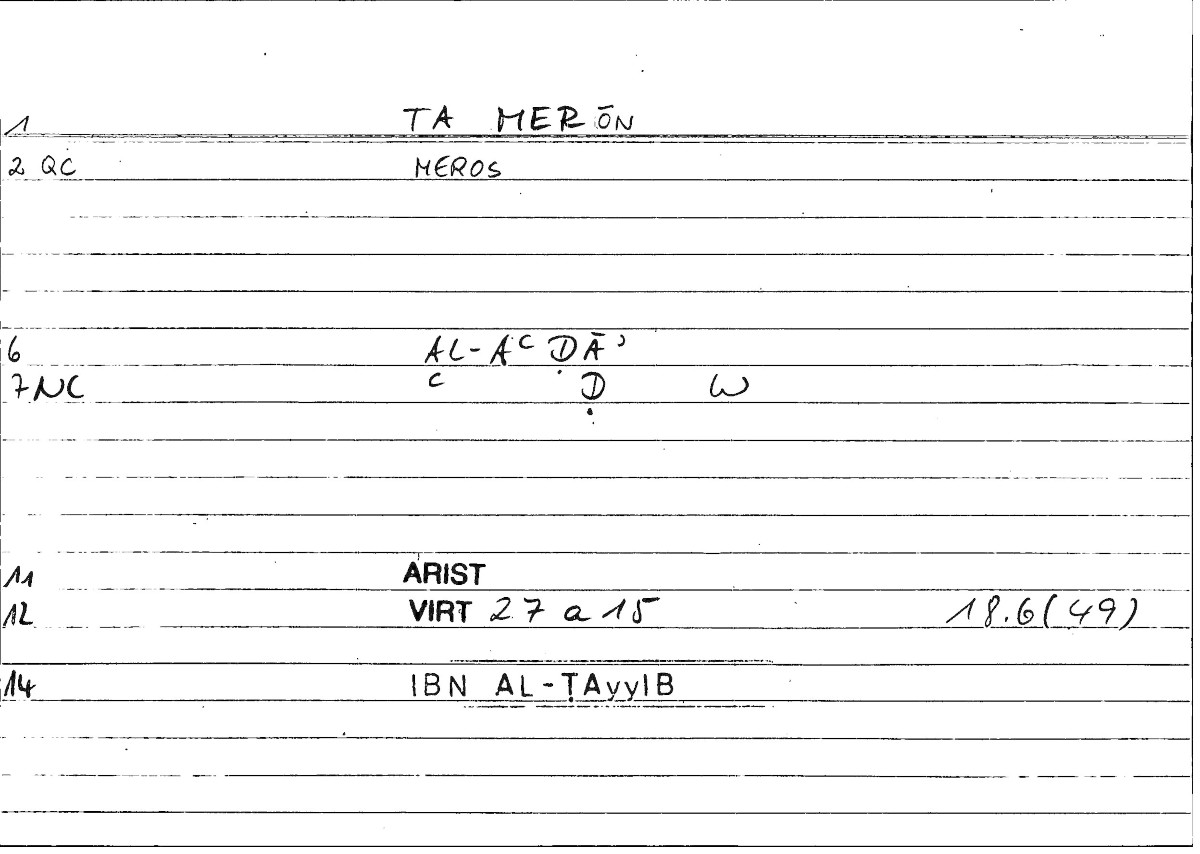 1 TA MERŌN
2 QC MEROS
6 AL-AʿḌĀʾ
7 NC ʿ Ḍ W
11 ARIST
12 VIRT 27 a 15 18.6(49)
14 IBN AL-ṬAyyIB